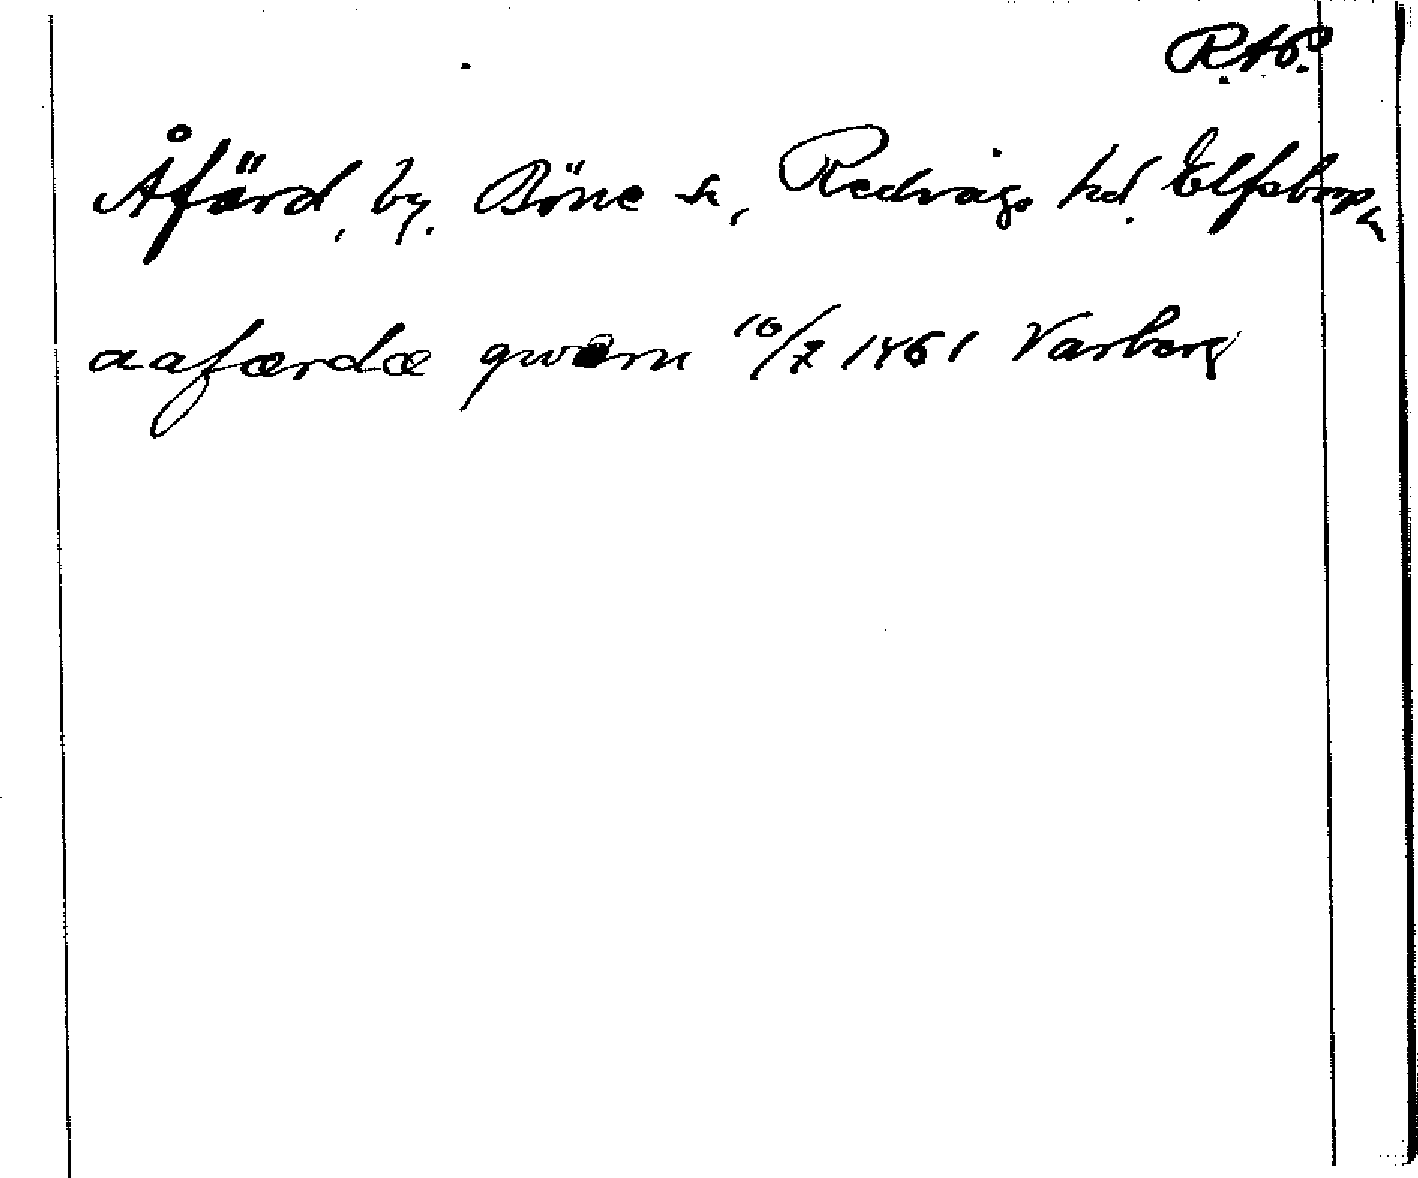 R.Ap.
Åfärd, by, Böne sn, Redvägs hd. Elfsborgs l.
aafærdæ qwærn 10/7 1461 Varberg